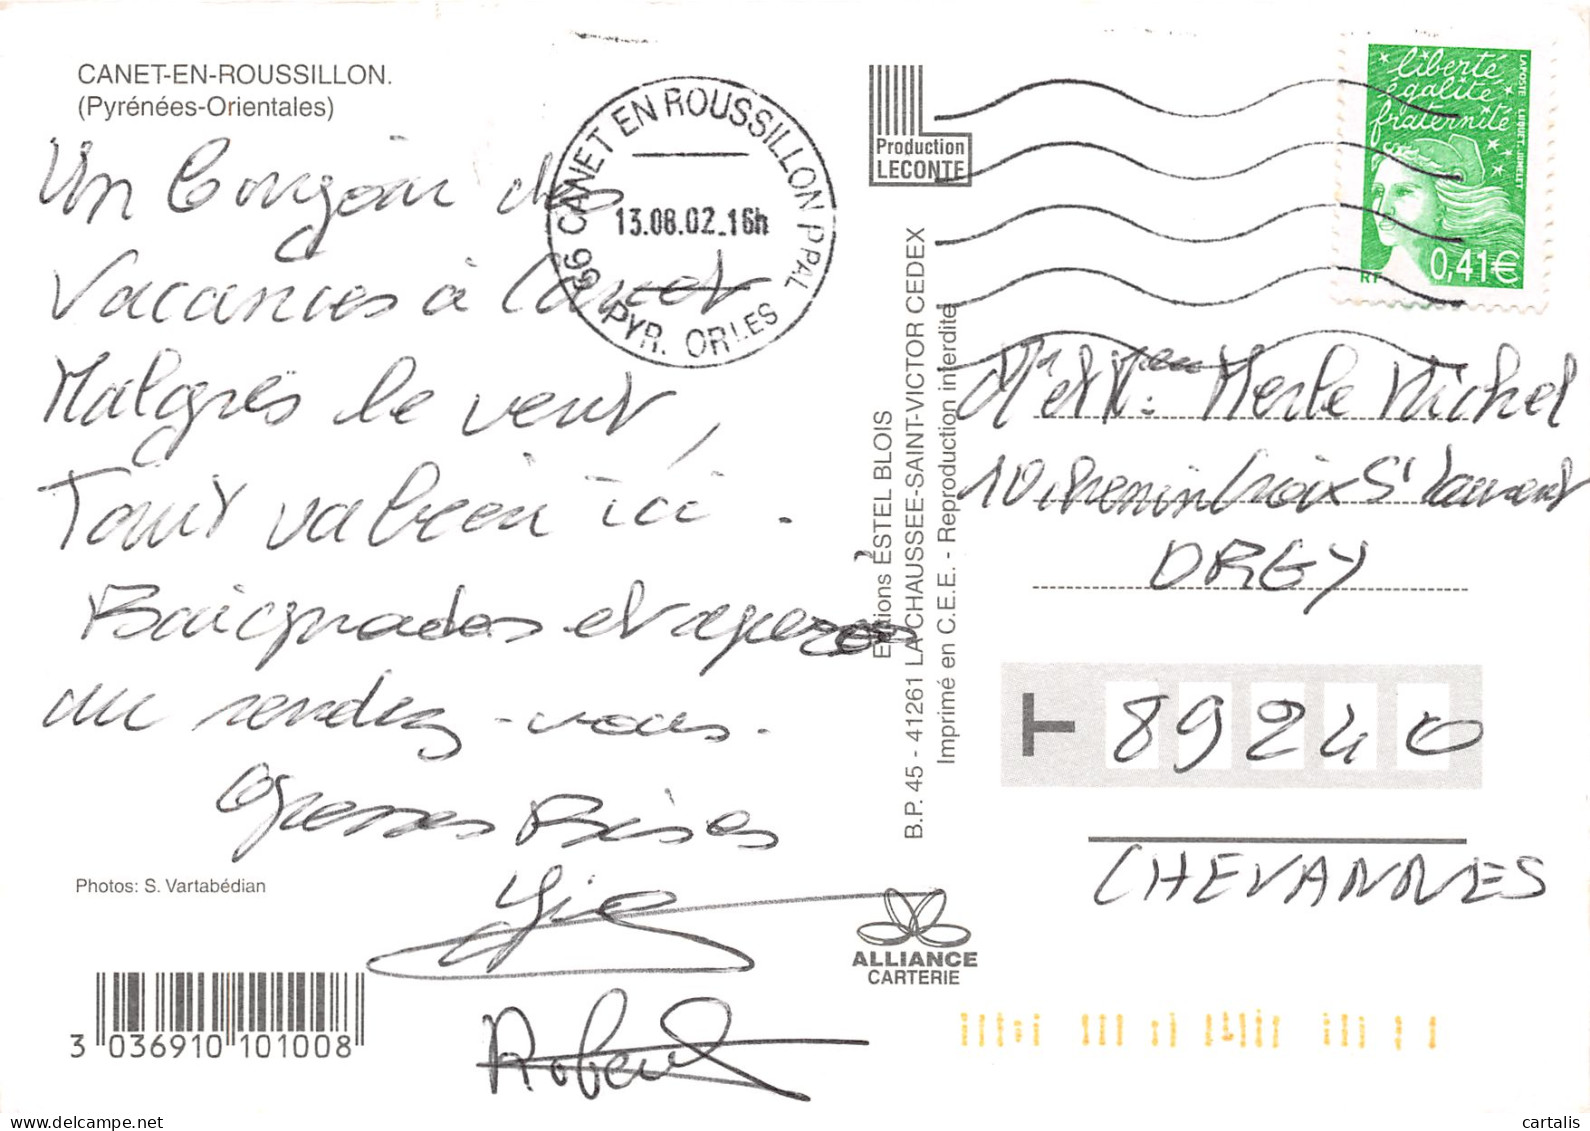 CANET-EN-ROUSSILLON.
(Pyrénées-Orientales)
Un Bonjour des
Vacances à Canet
Malgrès le vent,
Tout va bien ici.
Baignades et apéros
au rendez-vous.
Grosses Bises
Robert
Photos: S. Vartabédian
3 036910 101008
66 CANET EN ROUSSILLON PPAL
13.08.02.16h
PYR. ORLES
Production
LECONTE
Editions ESTEL BLOIS
B.P. 45 - 41261 LA CHAUSSEE-SAINT-VICTOR CEDEX
Imprimé en C.E.E. - Reproduction interdite
ALLIANCE
CARTERIE
liberté
égalité
fraternité
LA POSTE LUQUET. JUMELET
RF
0,41€
Mr et Mme Merle Michel
10 chemin Croix St Laurent
ORGY
T 89240
CHEVANNES
cartalis
delcampe.net